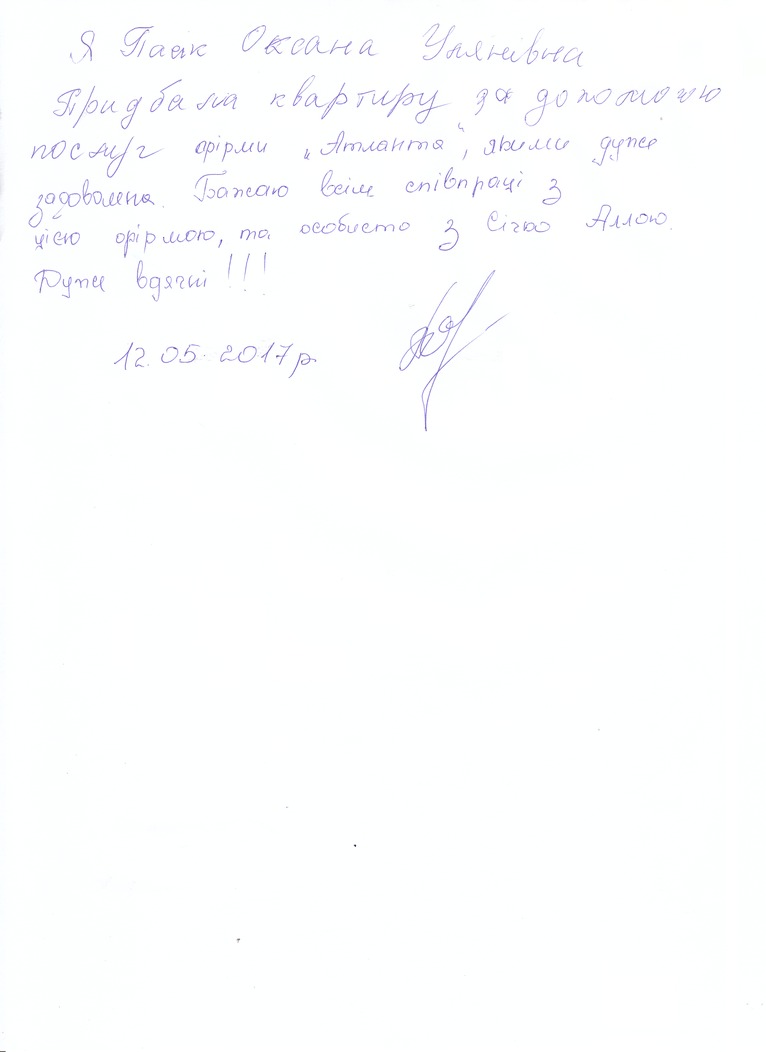 Я Паек Оксана Улянівна
Придбала квартиру за допомогою
послуг фірми „Атланта“, якими дуже
задоволена. Бажаю всім співпраці з
цією фірмою, та особисто з Січко Аллою.
Дуже вдячні !!!
12.05.2017р